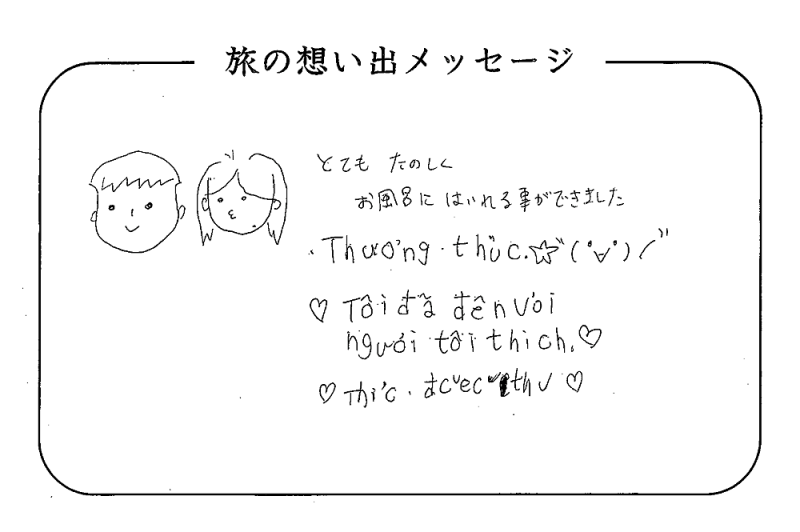 旅の想い出メッセージ
とても たのしく
お風呂に はいれる事ができました
・Thương・thức.☆゛(°∀°)ノ”
♡ Tôi đã đến với
người tôi thich.♡
♡ Thic.